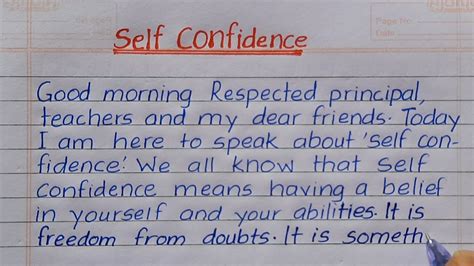 Page No.
Date
Self Confidence
Good morning Respected principal,
teachers and my dear friends. Today
I am here to speak about 'self con-
fidence.' We all know that self
confidence means having a belief
in yourself and your abilities. It is
freedom from doubts. It is someth